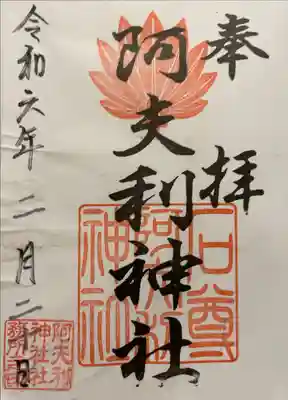 奉拝
阿夫利神社
令和六年二月二日
石尊
阿夫利
神社
阿夫利
神社社
務所印